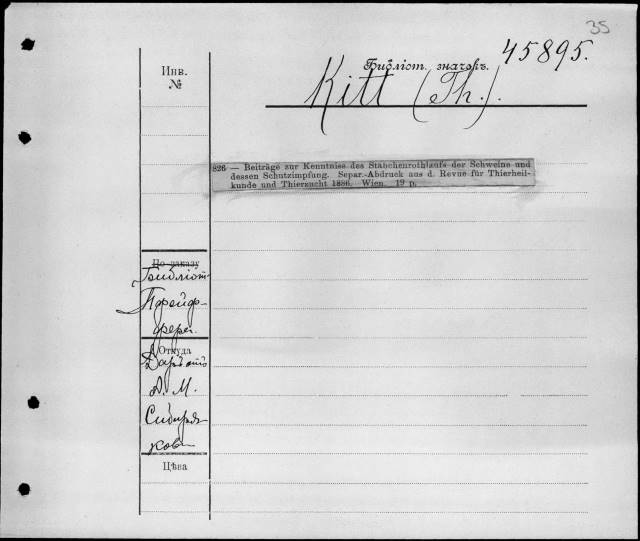 35
Библіот. значокъ.
45895.
Kitt (Th.).
Инв.
№
826 — Beiträge zur Kenntniss des Stäbchenrothlaufs der Schweine und
dessen Schutzimpfung. Separ.-Abdruck aus d. Revue für Thierheil-
kunde und Thierzucht 1886. Wien. 19 p.
По заказу
Библіот.
Пфейф-
фера.
Откуда
Даръ отъ
А. М.
Сибиря-
кова
Цѣна